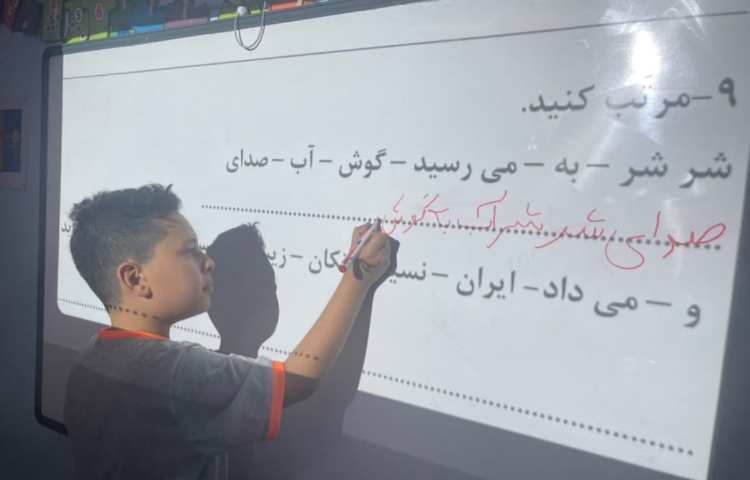 ۹-مرتب کنید.
شر شر - به - می رسید - گوش - آب - صدای
صدای شر شر آب به گوش
و - می داد - ایران - نسیم